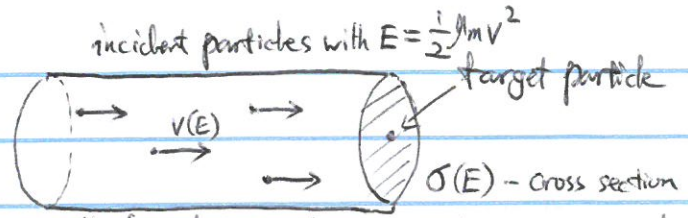 incident particles with E = ½ μmv²
target particle
v(E)
σ(E) - cross section